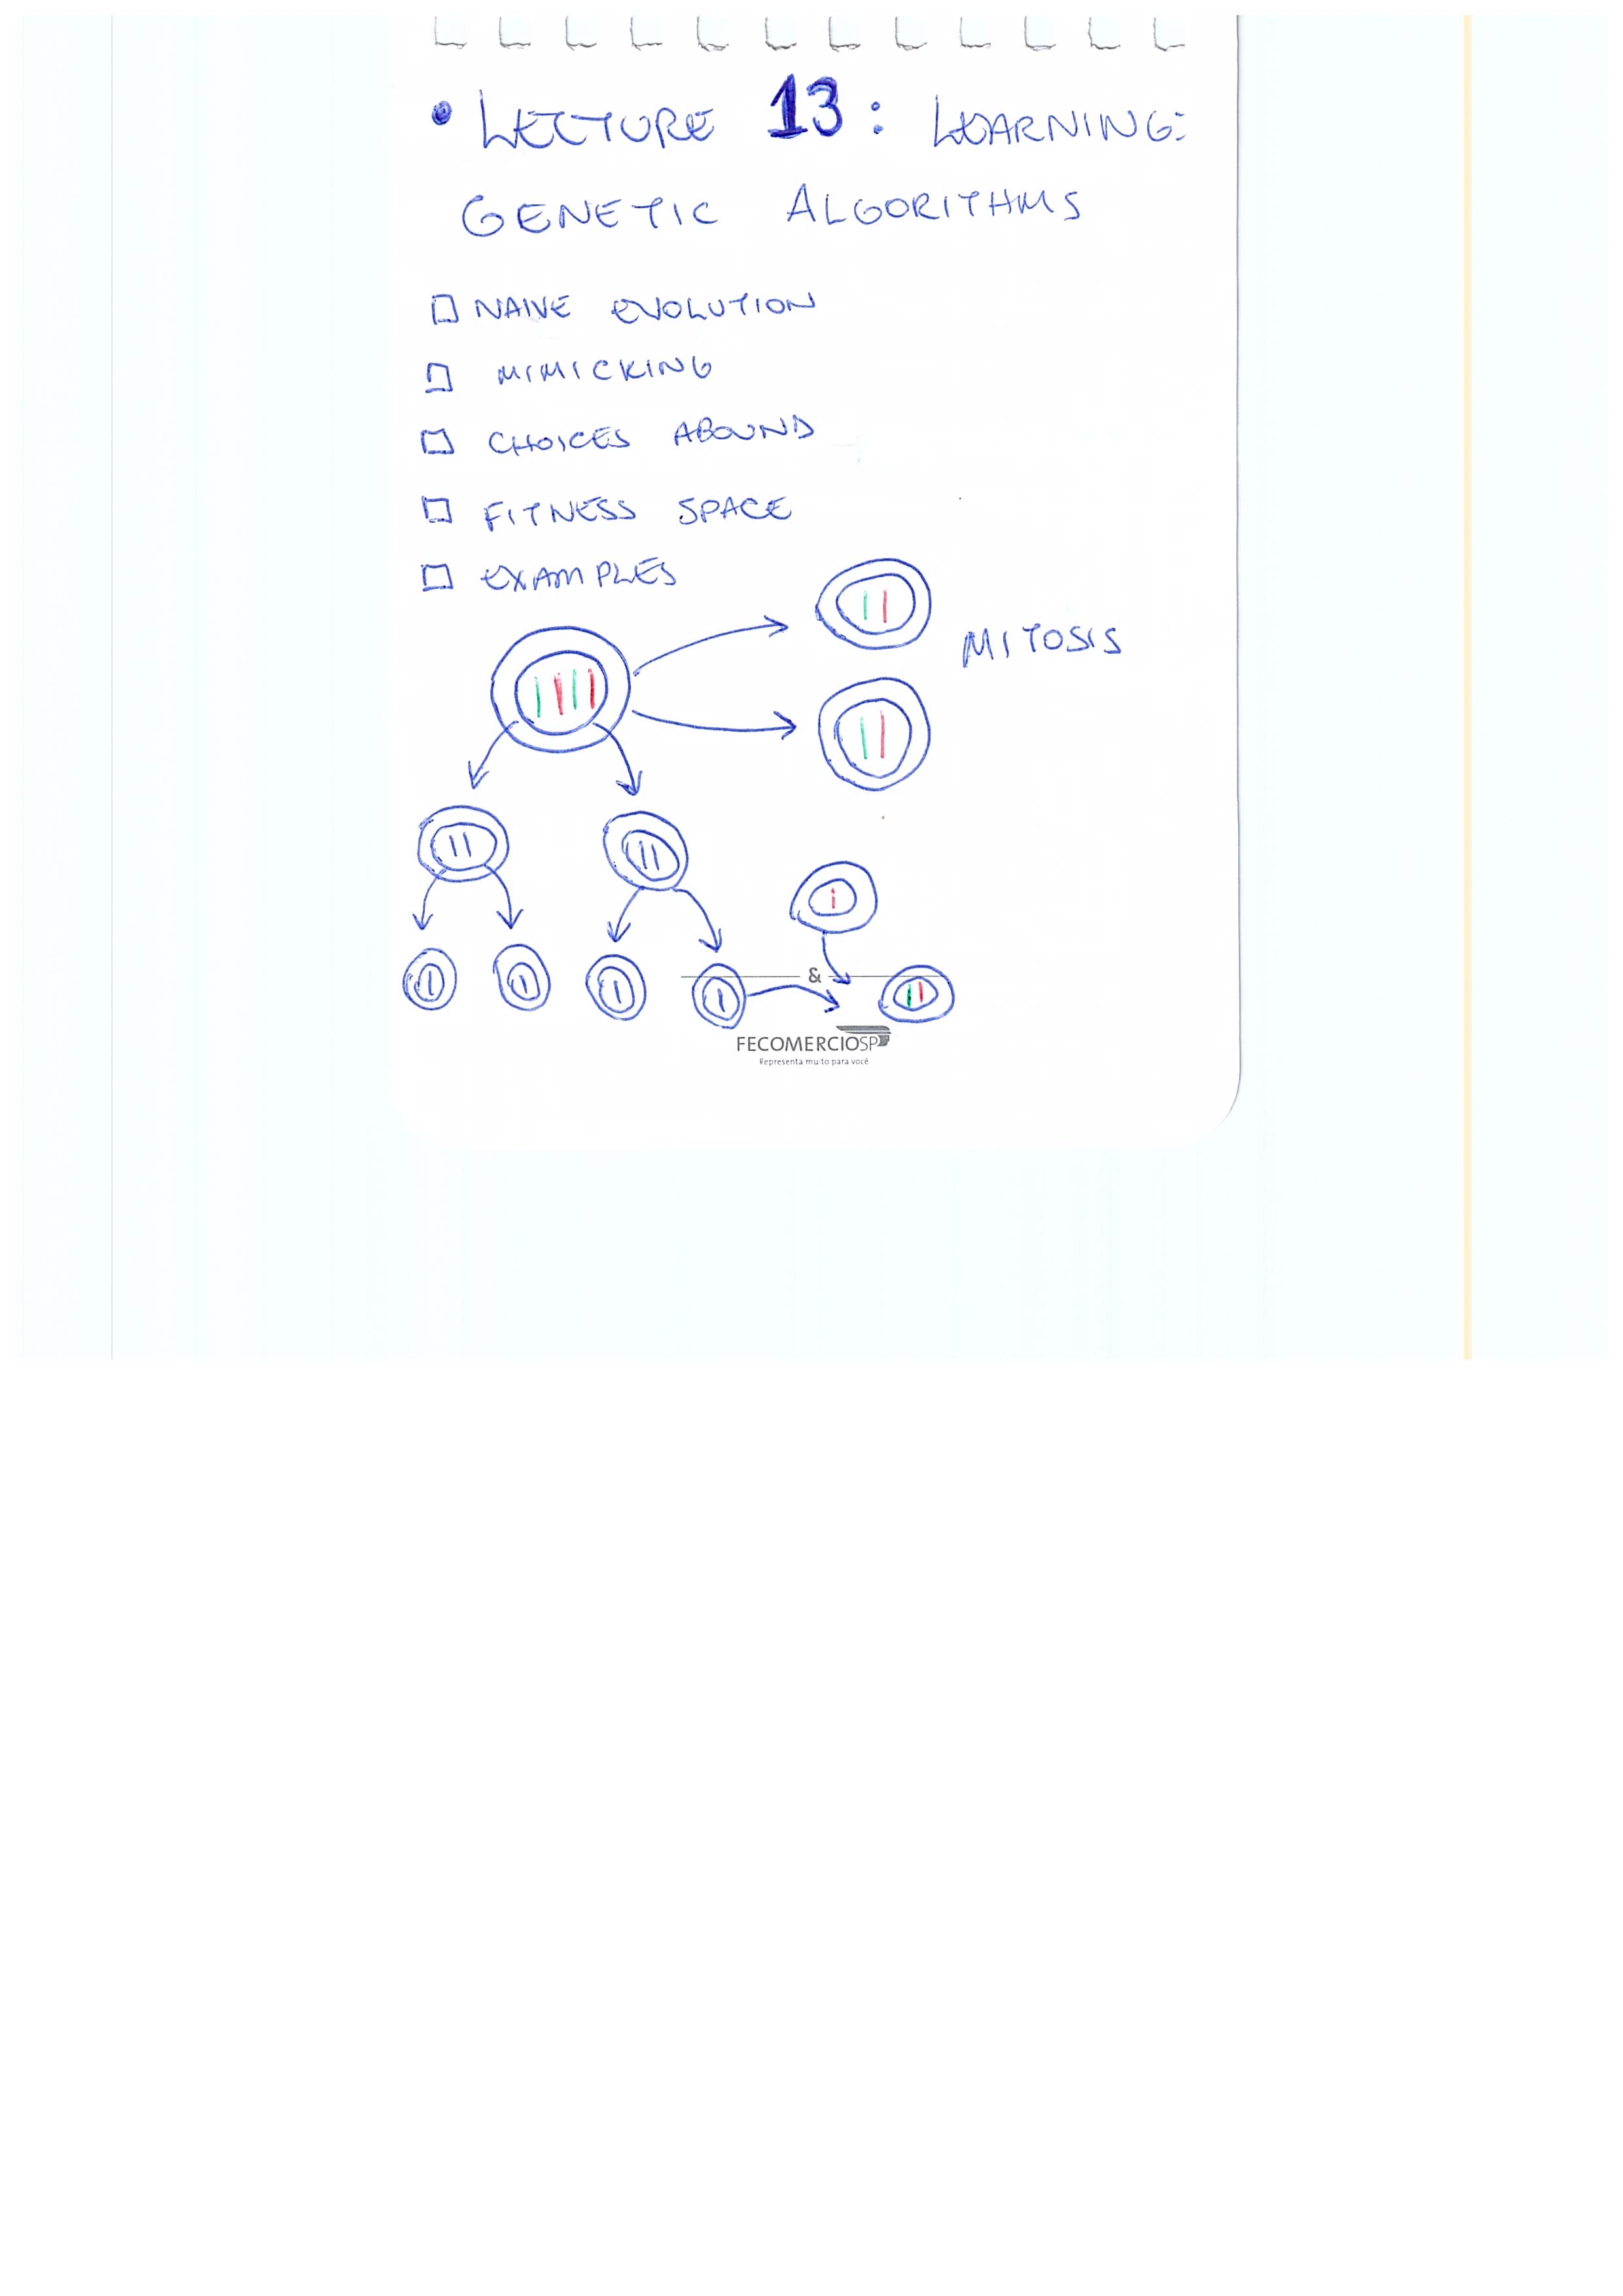 • LECTURE 13: LEARNING:
GENETIC ALGORITHMS
□ NAIVE EVOLUTION
□ MIMICKING
□ CHOICES ABOUND
□ FITNESS SPACE
□ EXAMPLES
MITOSIS
&
FECOMERCIOSP
Representa muito para você